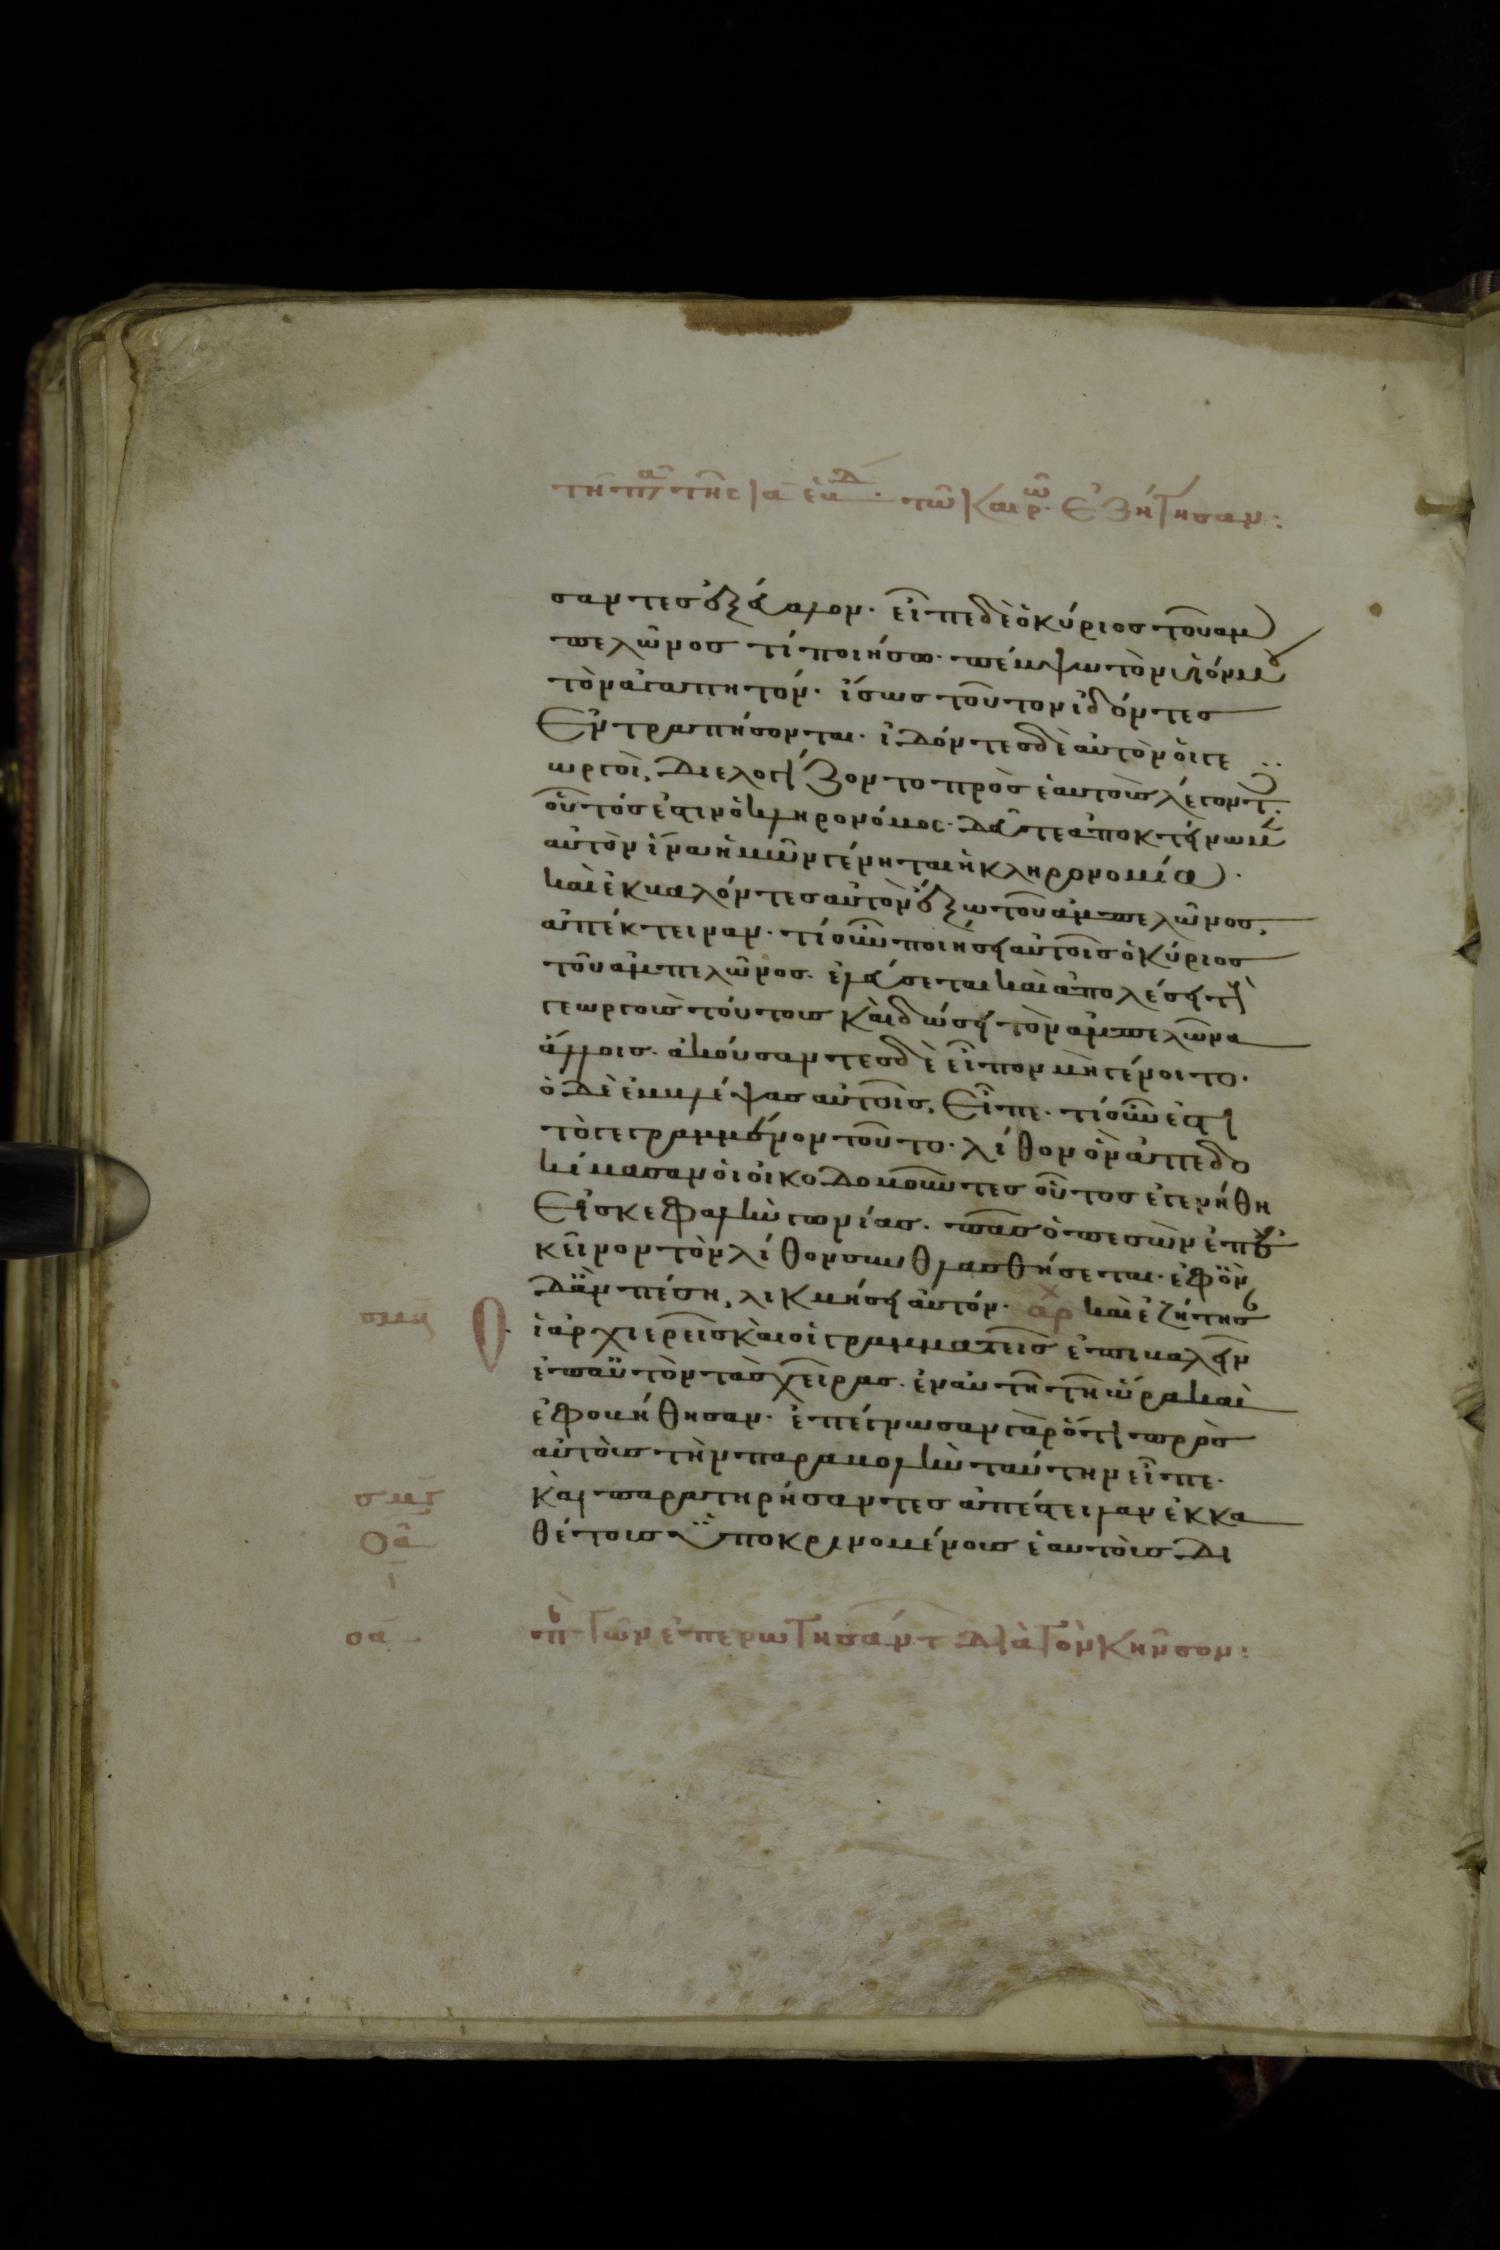 τῆ παρα τῆς ια ἑβδ. τῶ καιρῶ. ἐζήτησαν:
σαντες ἐξέβαλον. εἶπε δὲ ὁ κύριος τοῦ ἀμ
πελῶνος τί ποιήσω. πέμψω τὸν υἱόν μου
τὸν ἀγαπητόν. ἴσως τοῦτον ἰδόντες
ἐντραπήσονται. ἰδόντες δὲ αὐτὸν οἱ γε
ωργοὶ, διελογίζοντο πρὸς ἑαυτοὺς λέγοντ.
οὗτός ἐστιν ὁ κληρονόμος. δεῦτε ἀποκτείνωμ
αὐτὸν ἵνα ἡμῶν γένηται ἡ κληρονομία.
καὶ ἐκβαλόντες αὐτὸν ἔξω τοῦ ἀμπελῶνος,
ἀπέκτειναν. τί οὖν ποιήσει αὐτοῖς ὁ κύριος
τοῦ ἀμπελῶνος. ἐλεύσεται καὶ ἀπολέσει τοὺς
γεωργοὺς τούτους καὶ δώσει τὸν ἀμπελῶνα
ἄλλοις. ἀκούσαντες δὲ εἶπον μὴ γένοιτο.
ὁ δὲ ἐμβλέψας αὐτοῖς, εἶπε. τί οὖν ἐστὶ
τὸ γεγραμμένον τοῦτο. λίθον ὃν ἀπεδο
κίμασαν οἱ οἰκοδομοῦντες οὗτος ἐγενήθη
εἰς κεφαλὴν γωνίας. πᾶς ὁ πεσὼν ἐπ ἐ
κεῖνον τὸν λίθον συνθλασθήσεται. ἐφ ὃν
δ ἂν πέση, λικμήσει αὐτόν. αρχ καὶ ἐζήτησ
σμη Οἱ ἀρχιερεῖς καὶ οἱ γραμματεῖς ἐπιβαλεῖν
ἐπ αὐτὸν τὰς χεῖρας. ἐν αὐτῆ τῆ ὥρα καὶ
ἐφοβήθησαν. ἐπέγνωσαν γὰρ ὅτι πρὸς
αὐτοὺς τὴν παραβολὴν ταύτην εἶπε.
καὶ παρατηρήσαντες ἀπέστειλαν ἐγκα
θέτους ὑποκρινομένους ἑαυτοὺς δι
οα περ τῶν ἐπερωτησάντ διὰ τὸν κῆνσον: